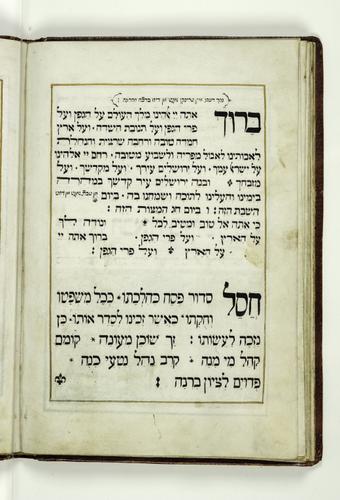 ברוך אתה יי אלהינו מלך העולם על הגפן ועל
פרי הגפן ועל תנובת השדה · ועל ארץ
חמדה טובה ורחבה שרצית והנחלת
לאבותינו לאכול מפריה ולשבוע מטובה · רחם יי אלהינו
על ישראל עמך · ועל ירושלים עירך · ועל מקדשך · ועל
מזבחך · ובנה ירושלים עיר קדשך במהרה
בימינו והעלינו לתוכה ושמחנו בה · ביום
השבת הזה : ו ביום חג המצות הזה :
כי אתה אל טוב ומטיב לכל · ונודה לך
על הארץ · ועל פרי הגפן · ברוך אתה יי
על הארץ · ועל פרי הגפן :
חסל סדור פסח כהלכתו · ככל משפטו
וחקתו · כאשר זכינו לסדר אותו · כן
נזכה לעשותו : זך שוכן מעונה · קומם
קהל מי מנה · קרב נהל נטעי כנה ·
פדוים לציון ברנה :